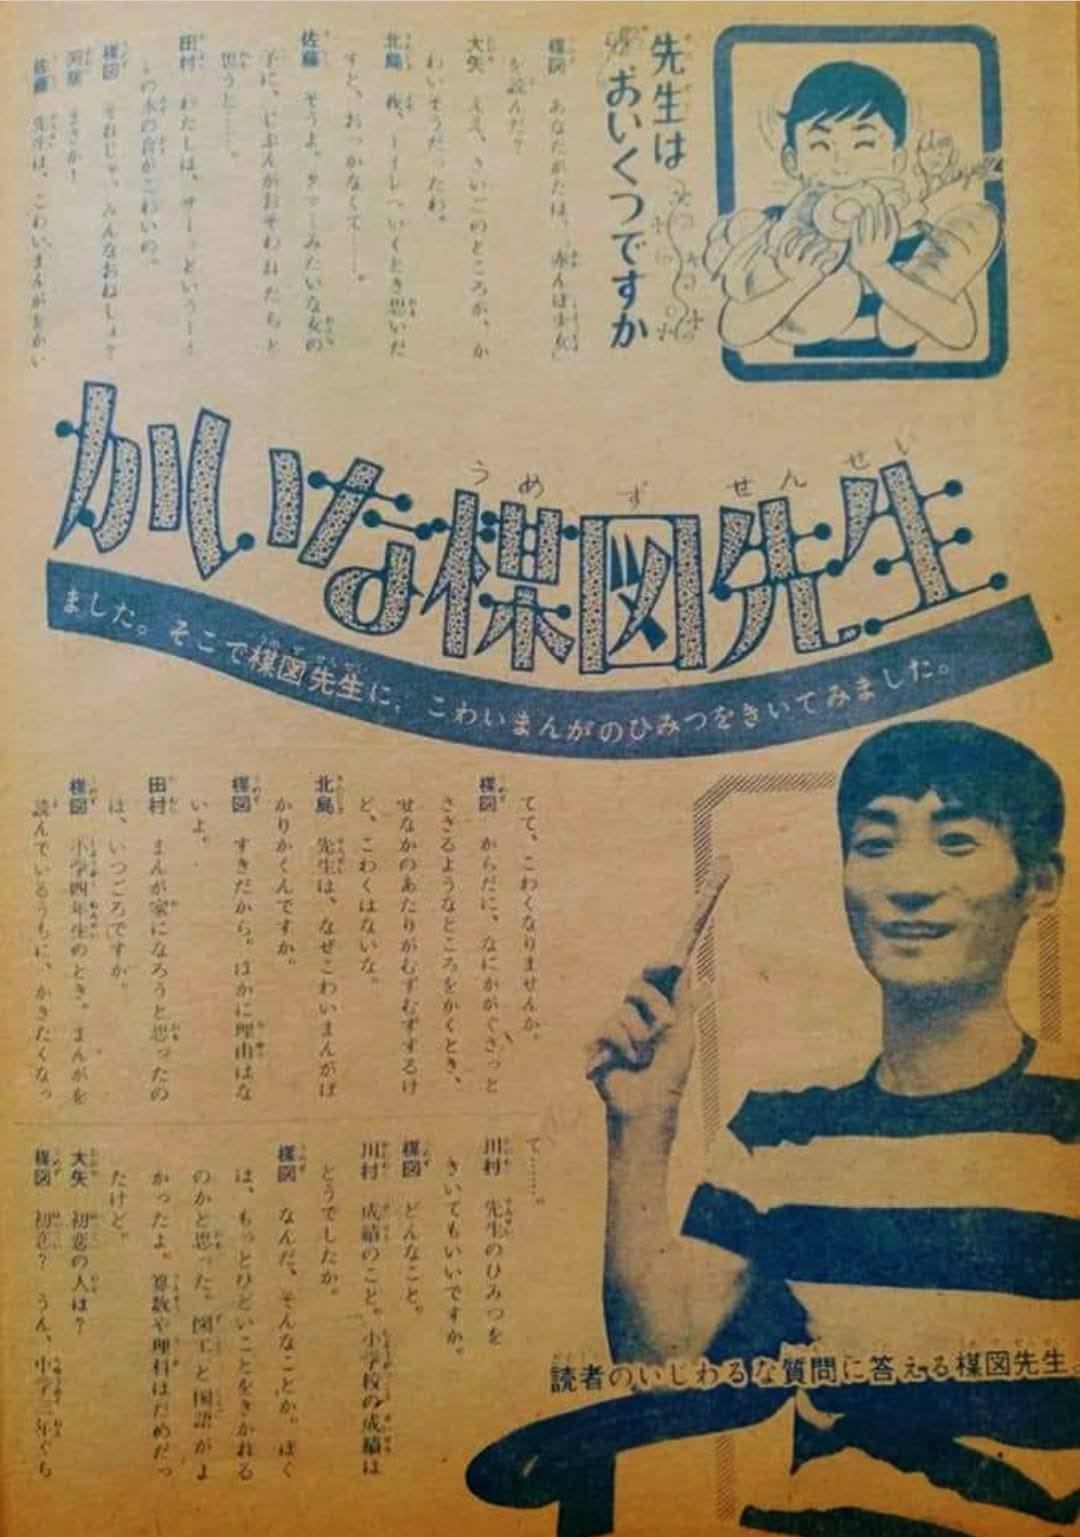 先生は
おいくつですか
楳図　あなたがたは、「赤んぼ少女」
を読んだ？
大矢　ええ、さいごのところが、か
わいそうだったわ。
北島　夜、トイレへいくとき思いだ
すと、おっかなくて……。
佐藤　そうよ。タマーみたいな女の
子に、じぶんがおそわれたらと
思うと……。
田村　わたしは、ザーッというトイ
レの水の音がこわいの。
楳図　それじゃ、みんなおねしょ？
まさか！
佐藤　先生は、こわいまんがをかい
かいな楳図先生
うめず せんせい
ました。そこで楳図先生に、こわいまんがのひみつをきいてみました。
てて、こわくなりませんか。
楳図　からだに、なにかがぐさっと
ささるようなところをかくとき、
せなかのあたりがむずむずするけ
ど、こわくはないな。
北島　先生は、なぜこわいまんがば
かりかくんですか。
楳図　すきだから。ほかに理由はな
いよ。
田村　まんが家になろうと思ったの
は、いつごろですか。
楳図　小学四年生のとき。まんがを
読んでいるうちに、かきたくなっ
て……。
川村　先生のひみつを
きいてもいいですか。
楳図　どんなこと。
川村　成績のこと。小学校の成績は
どうでしたか。
楳図　なんだ、そんなことか。ぼく
は、もっとひどいことをきかれる
のかと思った。図工と国語がよ
かったよ。算数や理科はだめだっ
たけど。
大矢　初恋の人は？
楳図　初恋？　うん、中学二年ぐら
読者のいじわるな質問に答える楳図先生。